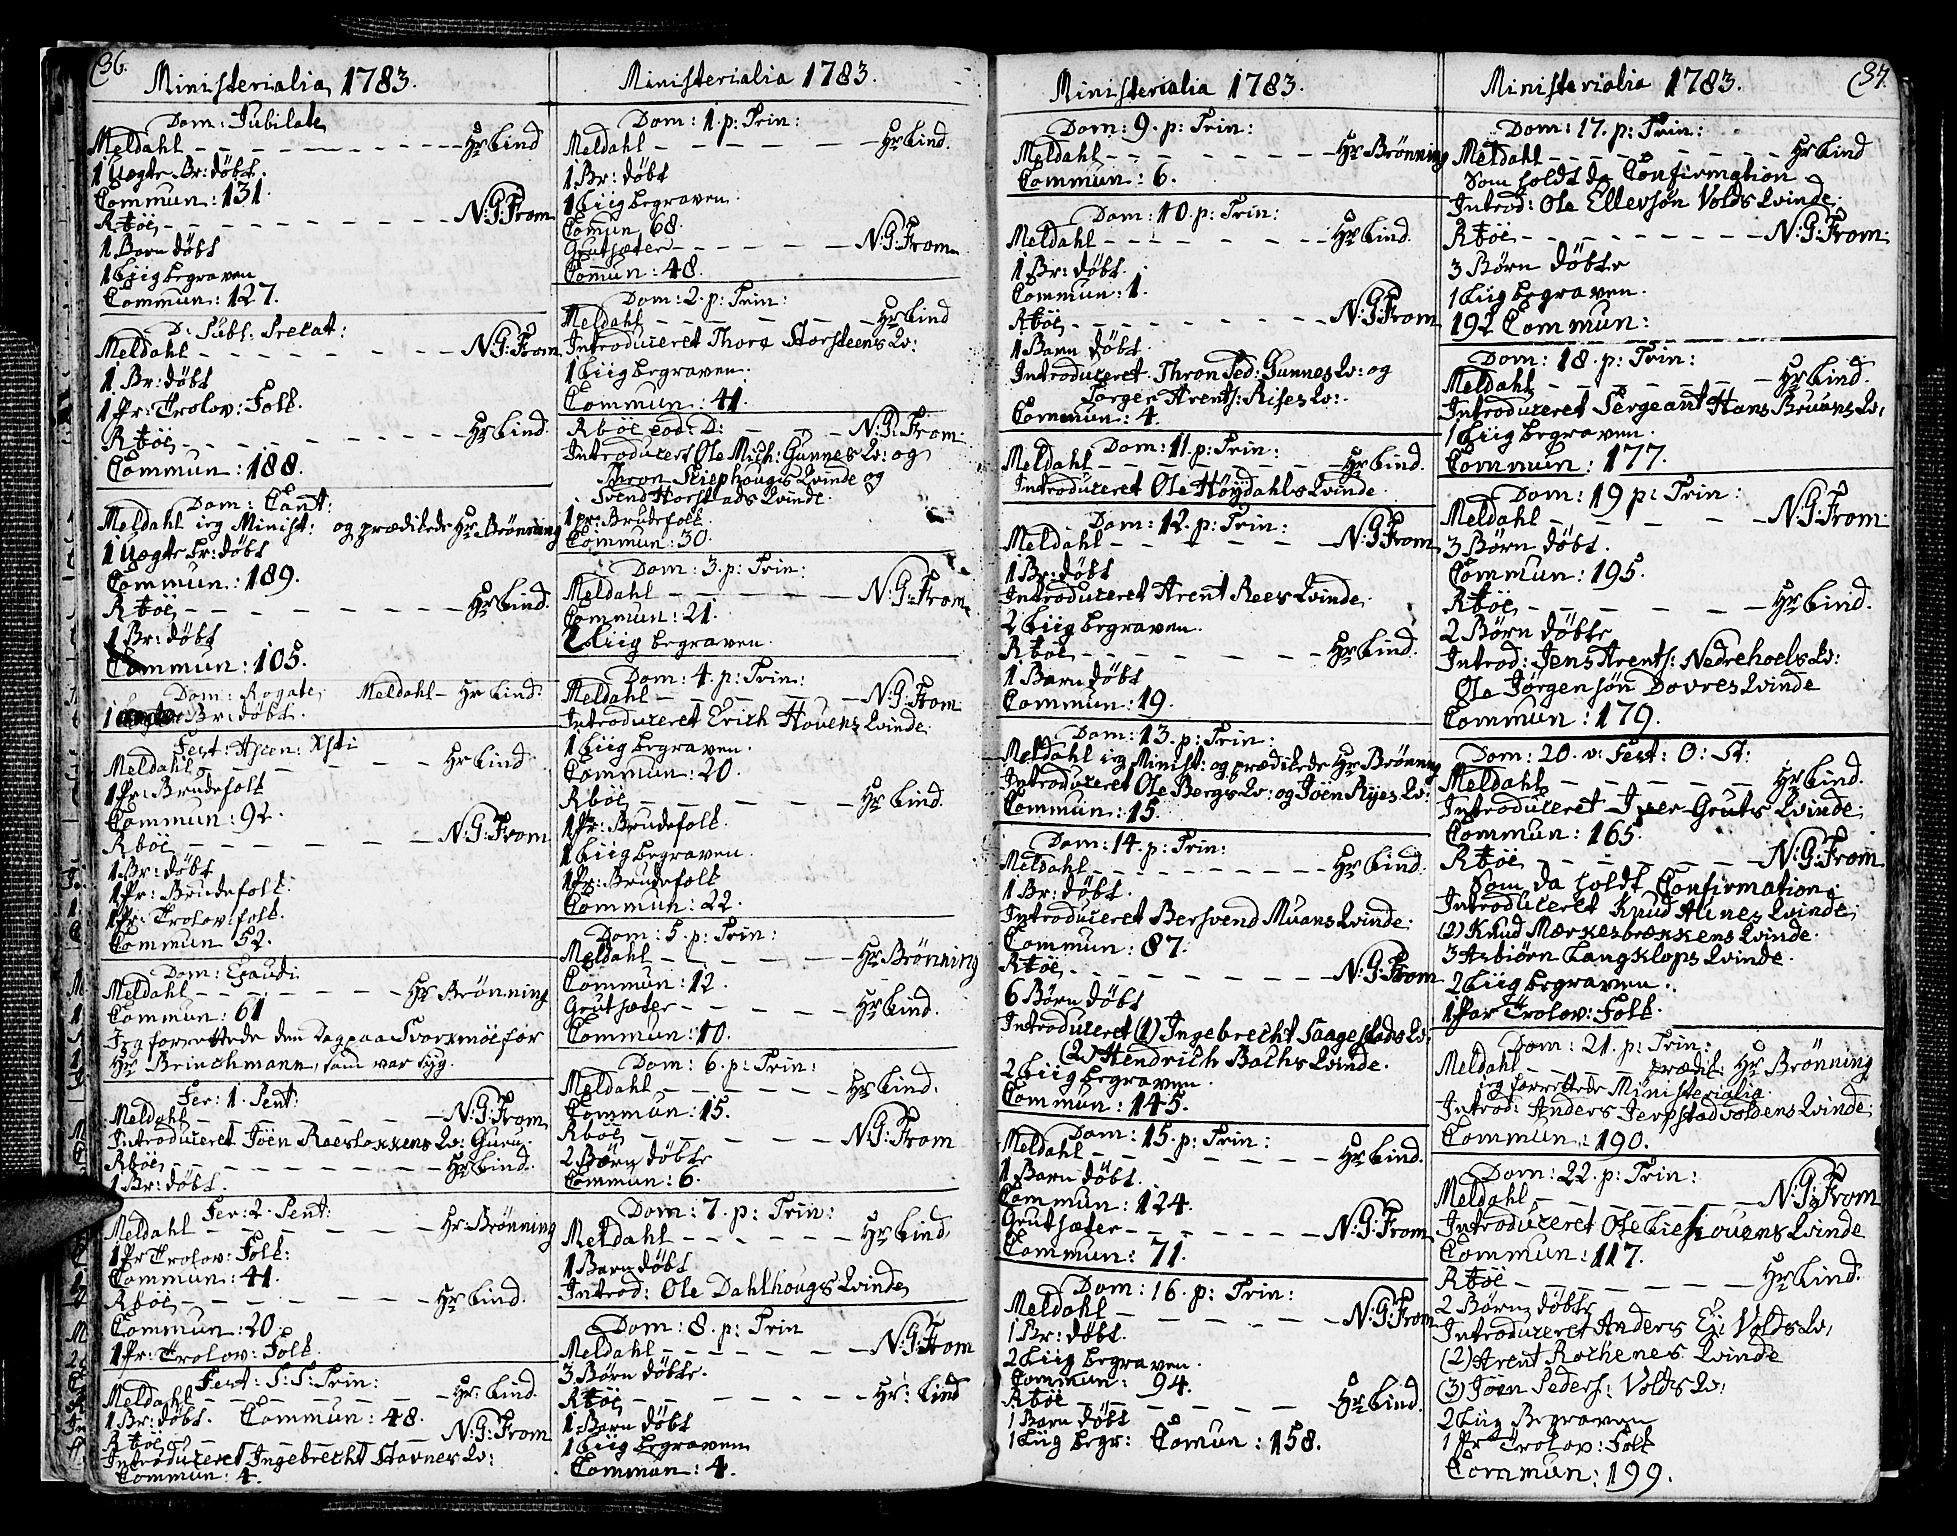 36.
Ministerialia 1783.
Dom: Jubilate
Meldahl - - - - - - - - - - Hr Lind
1 Uægte Br: döbt.
Commun: 131.
Rböe - - - - - - - - - N:G:From
1 Barn döbt
1 Liig begraven
Commun: 127.
D: Publ: Precat:
Meldahl - - - - - - - - N:G:From
1 Br: döbt
1 Pr: Trolov: Folk.
Rböe - - - - - - - - Hr Lind
Commun: 188.
Dom: Cant:
Meldahl ieg Minist: og prædikede Hr Brönning
1 Uægte Br: döbt
Commun: 189.
Rböe - - - - - - - - Hr Lind.
1 Br: döbt
Commun: 105.
Dom: Rogate, Meldahl - Hr Lind:
1 Br: döbt.
Fest: Ascen: Xsti
Meldahl - - - - - - Hr Lind
1 Pr: Brudefolk
Commun: 92.
Rböe - - - - - - - - N:G:From
1 Br: döbt
1 Pr: Brudefolk.
1 Pr: Trolov: folk.
Commun 52.
Dom: Exaudi
Meldahl - - - - - - Hr Brönning
Commun: 61
Jeg forrettede den Dag paa Svorkmöe for
Hr Brinchmann, som var syg.
Fer: 1. Pent:
Meldahl - - - - - - - N:G:From
Introduceret Jöen Raesloxkens Qv: Guru.
Rböe - - - - - - - - Hr Lind.
1 Br: döbt.
Fer: 2. Pent:
Meldahl - - - - - - - Hr: Brönning
1 Pr Trolov: Folk:
Commun: 41.
Rböe - - - - - - - Hr Lind.
Commun: 20.
1 Pr: Trolov: Folk.
Fest: S: S: Trin:
Meldahl - - - - - - - Hr: Lind.
1 Br: döbt. Commun: 48.
Rböe - - - - - - - N:G:From
Introduceret Ingebrecht Stavnes Qv:
Commun: 4.
Ministerialia 1783.
Dom: 1. p: Trin:
Meldahl - - - - - - Hr Lind.
1 Br: döbt
1 Liig begraven.
Comun 68.
Grutsæter - - - - - N:G:From
Comun: 48.
Dom: 2. p: Trin:
Meldahl - - - - - - Hr Lind
Introduceret Thore Storsteens Qv:
1 Liig begraven.
Commun: 41.
Rböe eod: D: - - - N:G:From.
Introducert Ole Mich: Gunnes Qv: og
Thron Skiephougs Qvinde og
Svend Horstads Qvinde.
1 pr: Brudefolk.
Commun: 30.
Dom: 3. p: Trin:
Meldahl - - - - - - N:G:From
Commun: 21.
2 Liig begraven
Dom: 4. p: Trin:
Meldahl - - - - - - N:G:From
Introduceret Erich Hovens Qvinde.
1 Liig begraven.
Commun: 20.
Rböe - - - - - - Hr Lind.
1 Pr: Brudefolk.
1 Liig begraven.
1 Pr: Brudefolk
Commun: 22.
Dom: 5. p: Trin:
Meldahl - - - - - Hr Brönning
Commun: 12.
Grutsæter - - - - - Hr Lind.
Commun: 10.
Dom: 6. p: Trin:
Meldahl - - - - - Hr Lind.
Commun: 15.
Rböe - - - - - - N:G:From
2 Börn döbte
Commun: 6.
Dom: 7. p: Trin:
Meldahl - - - - - - Hr Lind.
1 Barn döbt
Introd: Ole Dahlhougs Qvinde
Dom: 8. p: Trin
Meldahl - - - - - - N:G:From
3 Börn döbte.
Rböe - - - - - - - Hr: Lind
1 Barn döbt
1 Liig begraven
Commun: 4.
Ministerialia 1783.
Dom: 9. p: Trin:
Meldahl - - - - - - - Hr Brönning
Commun: 6.
Dom: 10. p: Trin:
Meldahl - - - - - - - Hr Lind.
1 Br: döbt.
Commun: 1.
Rböe - - - - - - - - - N:G:From
1 Barn döbt.
Introduceret Thron Ped: Gunnes Qv: og
Torger Arents: Rises Qv:
Commun: 4.
Dom: 11. p: Trin:
Meldahl - - - - - - - - Hr Lind.
Introduceret Ole Höydahls Qvinde.
Dom: 12. p: Trin:
Meldahl - - - - - - - N:G:From
1 Br: döbt
Introduceret Arent Rees Qvinde,
2 Liig begraven.
Rböe - - - - - - - - Hr Lind.
1 Barn döbt
Commun: 19.
Dom: 13. p: Trin:
Meldahl ieg Minist: og prædikede Hr Brönning
Introduceret Ole Bergs Qv: og Jöen Ryes Qv:
Commun: 15.
Dom: 14. p: Trin:
Meldahl - - - - - - - - - Hr Lind.
1 Br: döbt.
Introduceret Bersvend Muans Qvinde.
Commun: 87.
Rböe - - - - - - - - - N:G:From
6 Börn döbt
Introduceret (1) Ingebrecht Saagestads Qv:
(2) Hendrich Bachs Qvinde.
2 Liig begraven.
Commun: 145.
Dom: 15. p: Trin:
Meldahl - - - - - - - - Hr Lind.
1 Barn döbt.
Commun: 124.
Grutsæter - - - - - - - N:G:From
Commun: 71.
Dom: 16. p: Trin:
Meldahl - - - - - - - N:G:From
1 Br: döbt.
2 Liig begraven.
Commun: 94.
Rböe - - - - - - - Hr Lind.
1 Barn döbt
1 Liig begr: Comun: 158.
Ministerialia 1783.
37.
Dom: 17. p: Trin:
Meldahl - - - - - - - - Hr Lind
Som holdt da Confirmation
Introd: Ole Ellevsön Volds Qvinde.
Rböe - - - - - - - - - N:G:From.
3 Börn döbte
1 Liig begraven.
192 Commun:
Dom: 18. p: Trin:
Meldahl - - - - - - - Hr Lind.
Introduceret Sergeant Hans Bruuns Qv:
1 Liig begraven.
Commun: 177.
Dom: 19 p: Trin:
Meldahl - - - - - - N:G:From
3 Börn döbt.
Commun: 195.
Rböe - - - - - - - Hr Lind.
2 Börn döbte
Introd: Jens Arents: Nedrehoels Qv:
Ole Jörgensön Dovres Qvinde
Commun: 179.
Dom: 20. v: Fest: O: St:
Meldahl - - - - - - - Hr Lind.
Introduceret Iver Gruts Qvinde,
Commun: 165.
Rböe - - - - - - - N:G:From
Som da holdt Confirmation.
Introduceret Knud Aunes Qvinde,
(2) Knud Mærkesbrækkens Qvinde.
3 Asbiörn Langklops Qvinde.
2 Liig begraven.
1 Par Trolov: Folk.
Dom: 21. p: Trin:
Meldahl - - - - - prædik: Hr Brönning
ieg forrettede Ministerialia
Introd: Anders Jerpstadvoldens Qvinde,
Commun: 190.
Dom: 22. p: Trin:
Meldahl - - - - - - - N:G:From
Introduceret Ole Liehouens Qvinde
Commun: 117.
Rböe - - - - - - - Hr Lind.
2 Börn döbte
Introduceret Anders E: Volds Qv:
(2) Arent Rochenes Qvinde
(3) Jöen Peders: Volds Qv:
2 Liig Begraven
1 Pr Trolov: Folk
Commun: 199.